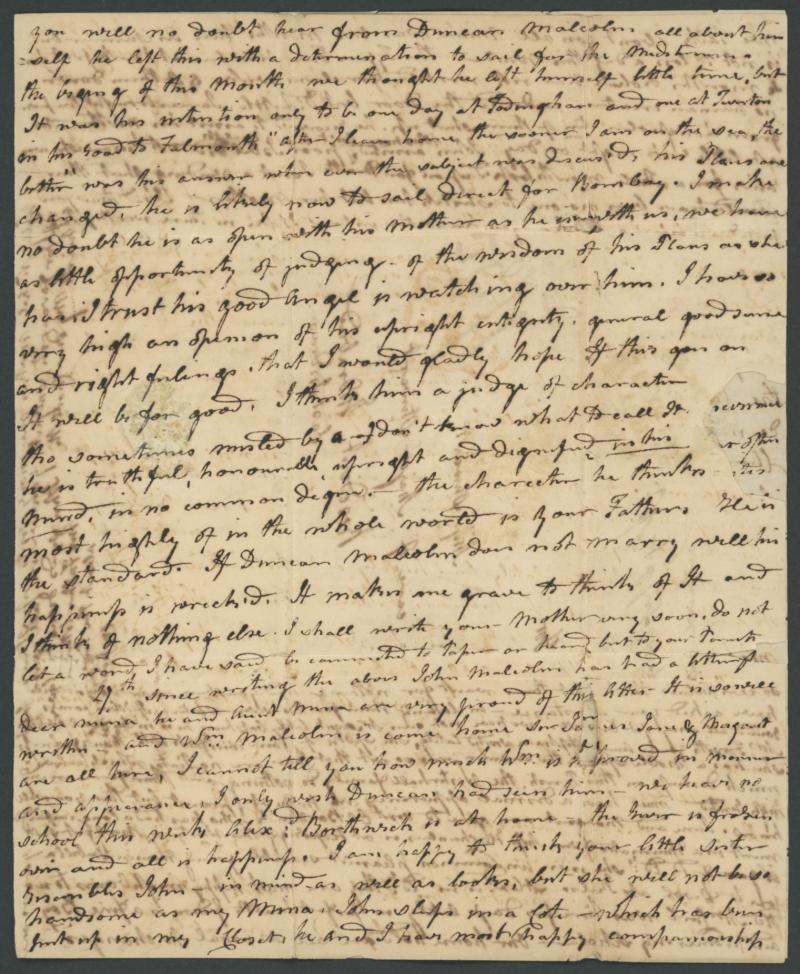 you will no doubt hear from Duncan Malcolm all about him
-self he left this with a determination to sail for the
the beging of this Month we thought he left himself little time, but
It was his intention only to be one day at and one at
in his road to Falmouth "after I leave home the sooner I am on the sea, the
better" was his answer when ever the subject was discus'd, his Plans are
changed, he is likely now to sail direct for Bombay. I make
no doubt he is as open with his Mother as he is with us, we have
as little opportunity of judging of the wisdom of his Plans as she
has. I trust his good Angel is watching over him. I have so
very high an openion of his upright integrity, general good sense
and right feelings, that I would gladly hope If this goes on
It will be for good. I think him a judge of character
tho sometimes misled by a I don't know what to call It
he is truthful, honourable, upright and dignified in his
mind, in no common degree. - the character he thinks
most highly of in the whole world is your Fathers He is
the standard. If Duncan Malcolm does not marry well his
happiness is wreck'd. It makes me grave to think of It and
I think of nothing else. I shall write your Mother very soon, do not
let a word I have said be committed to Paper or heard but to your
29th since writing the above John Malcolm has had a letter of
dear Mina he and Aunt Mina are very proud of this letter It is so well
written - and Wm Malcolm is come home Sir James Jane & Margaret
are all here, I cannot tell you how much Wm is improved in manner
and appearance, I only wish Duncan had seen him - we have no
school this week Alexr Borthwick is at home - the river is frozen
over and all is happiness. I am happy to think your little sister
resembles John - in mind as well as looks, but she will not be so
handsome as my Mina. John sleeps in a Cote - which has been
put up in my Closet, he and I have most happy companionship